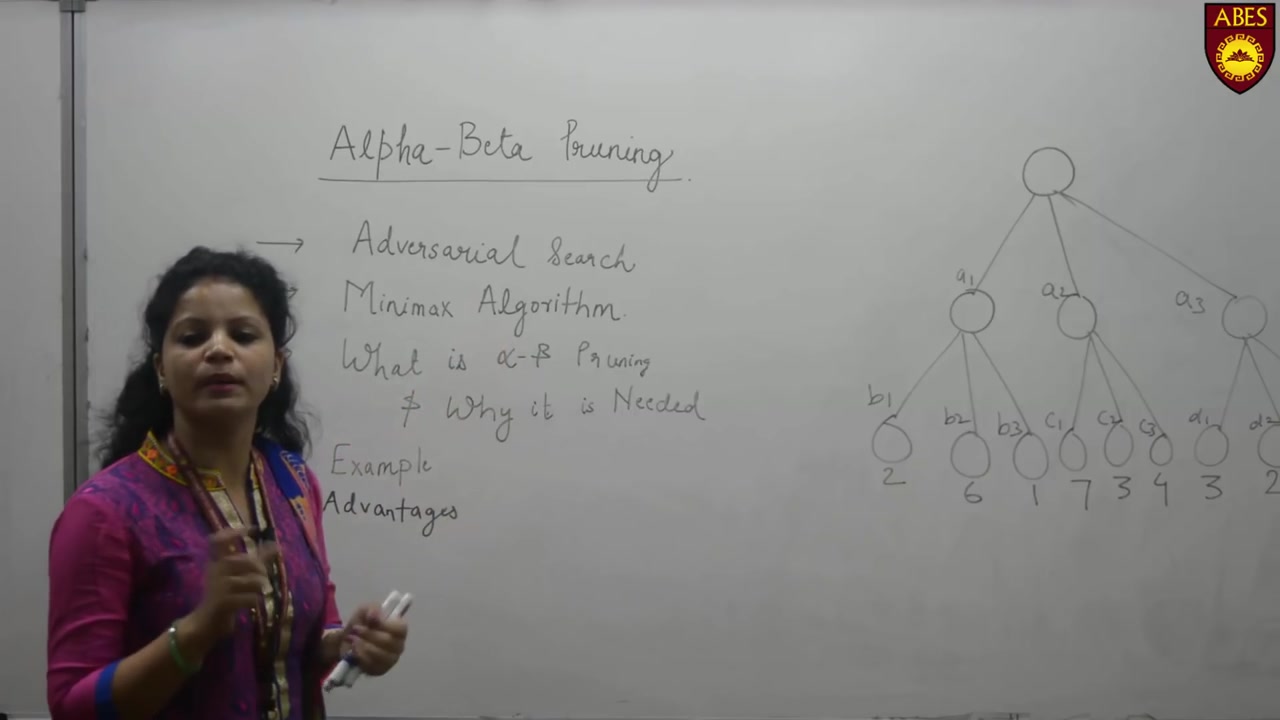 ABES
Alpha-Beta Pruning
→ Adversarial Search
Minimax Algorithm.
What is α-β Pruning
& Why it is Needed
Example
Advantages
a1 a2 a3
b1 b2 b3 c1 c2 c3 d1 d2
2 6 1 7 3 4 3 2